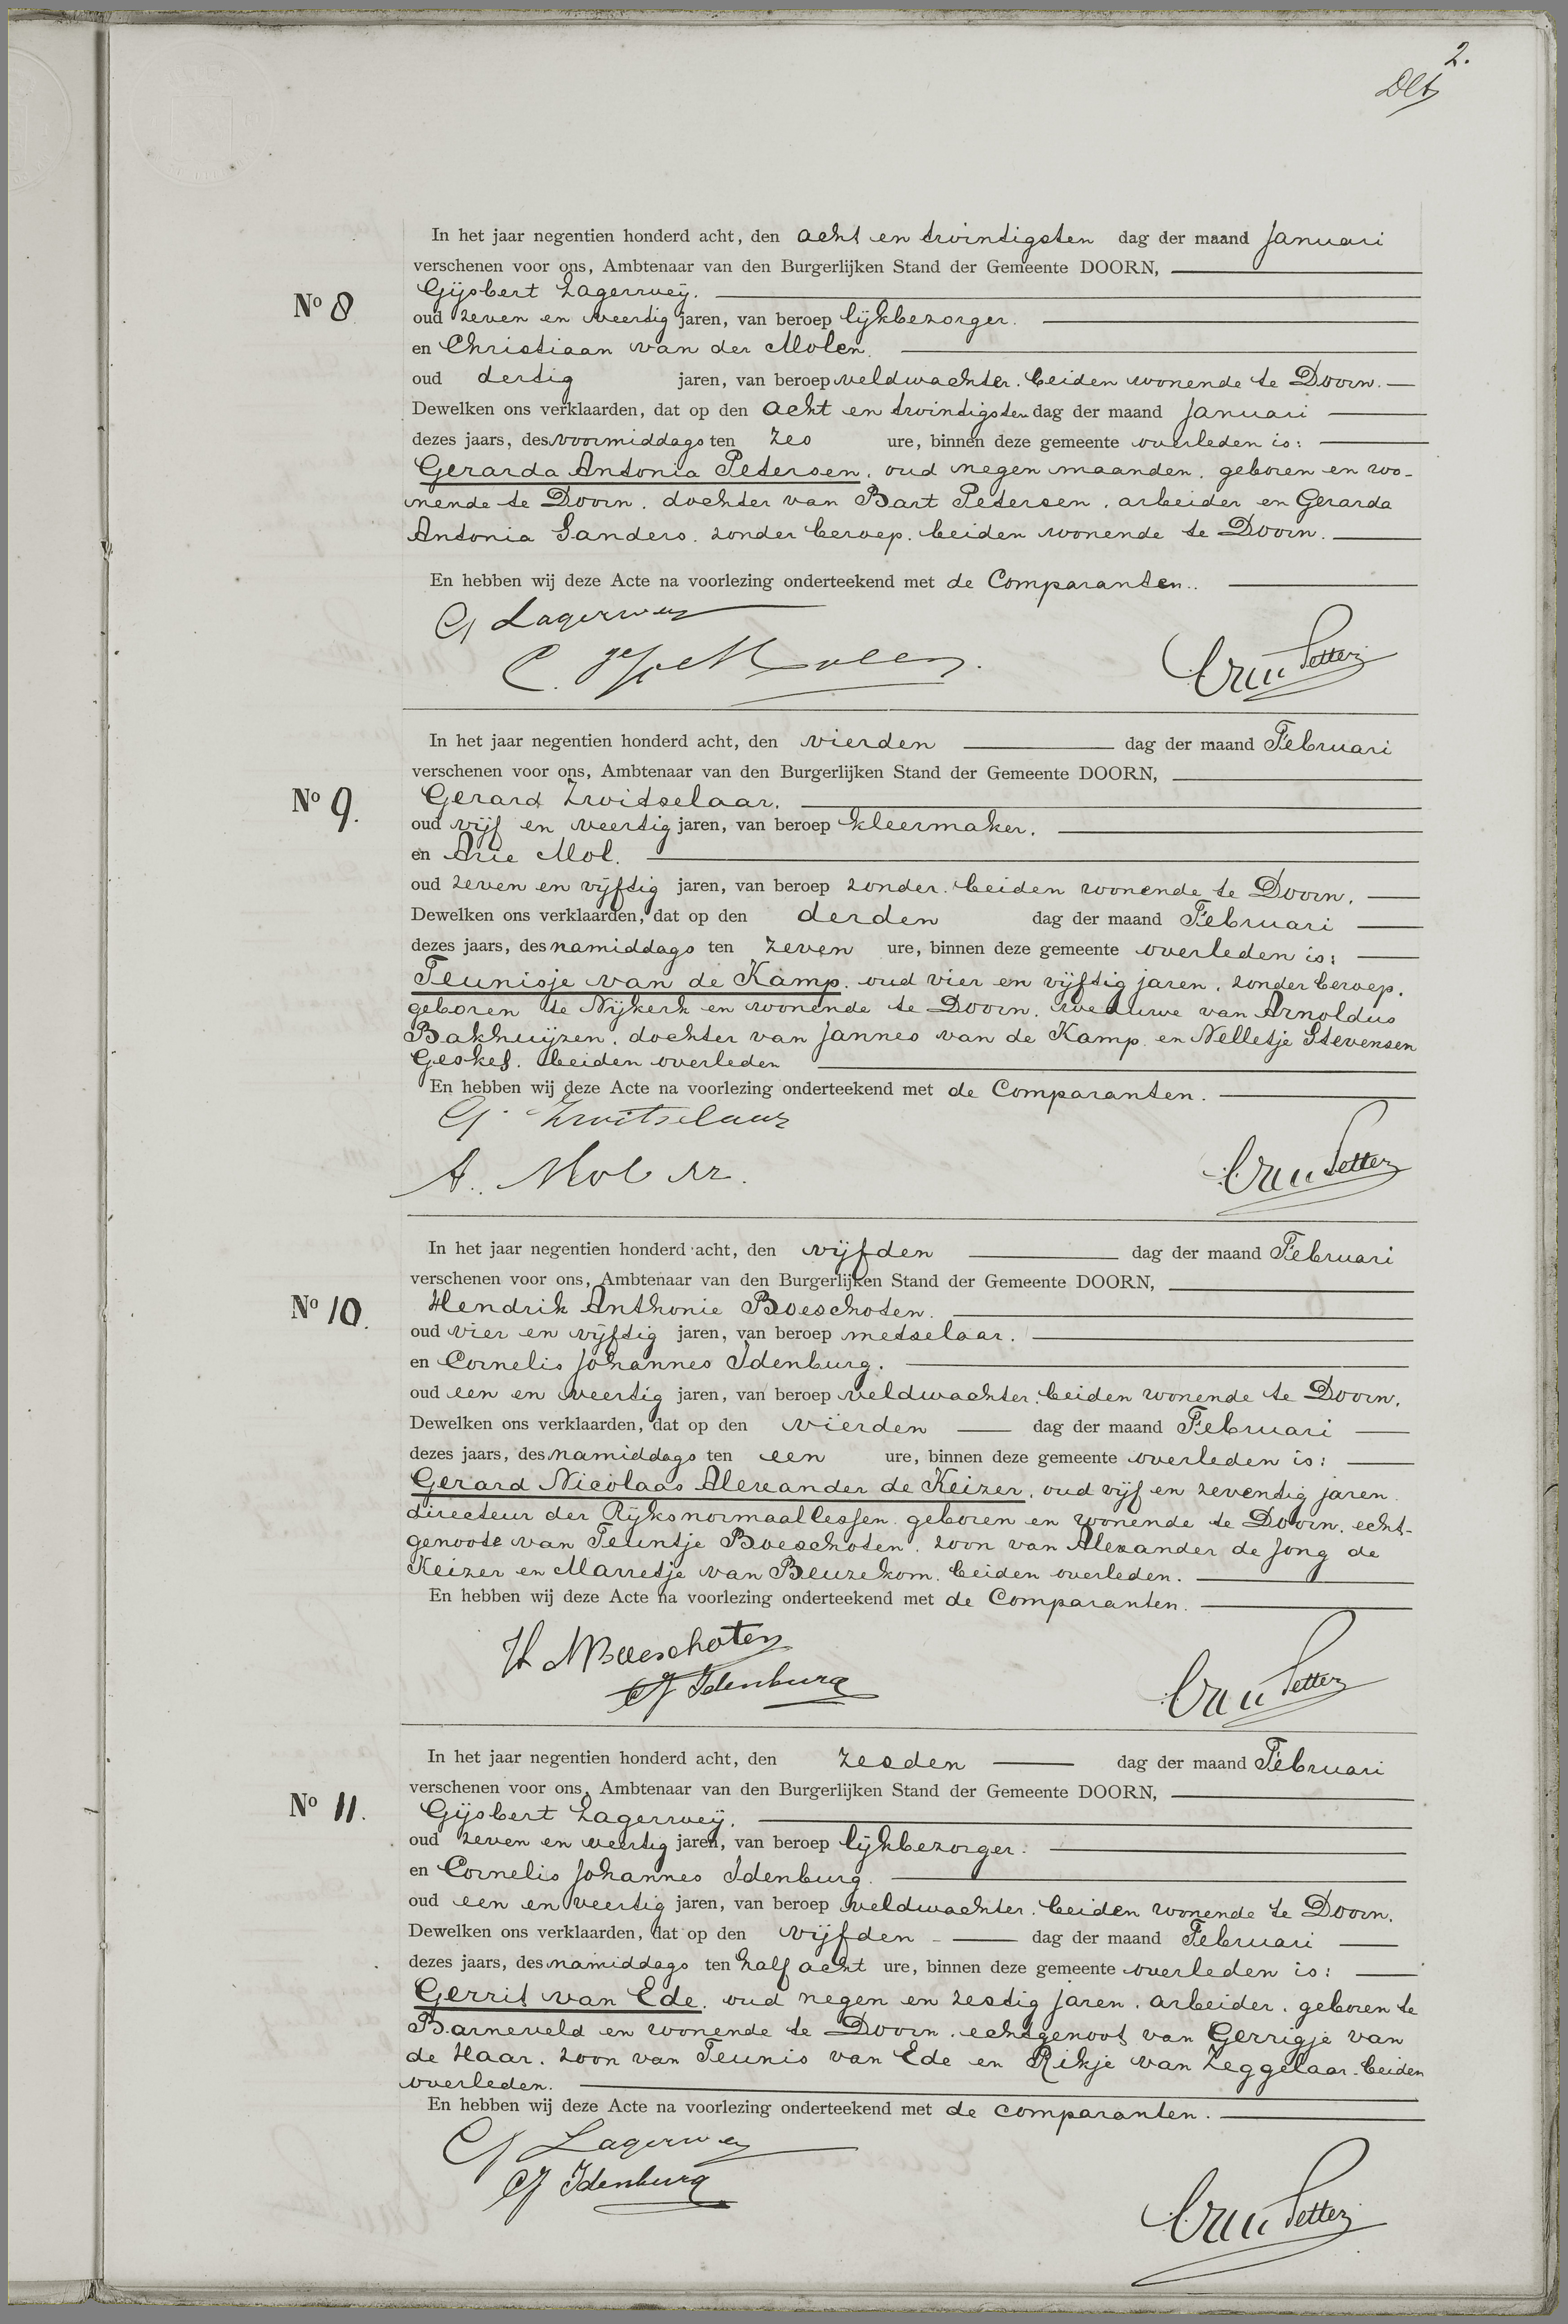 2.
In het jaar negentien honderd acht, den acht en twintigsten dag der maand Januari
verschenen voor ons, Ambtenaar van den Burgerlijken Stand der Gemeente DOORN,
No 8
Gijsbert Lagerweij.
oud zeven en veertig jaren, van beroep lijkbezorger.
en Christiaan van der Molen.
oud dertig jaren, van beroep veldwachter. beiden wonende te Doorn.
Dewelken ons verklaarden, dat op den acht en twintigsten dag der maand Januari
dezes jaars, des voormiddags ten zes ure, binnen deze gemeente overleden is:
Gerarda Antonia Petersen, oud negen maanden, geboren en wo-
nende te Doorn, dochter van Bart Petersen, arbeider en Gerarda
Antonia Sanders. zonder beroep. beiden wonende te Doorn.
En hebben wij deze Acte na voorlezing onderteekend met de Comparanten.
G Lagerweij
C. v. d. Molen.
No 9.
In het jaar negentien honderd acht, den vierden dag der maand Februari
verschenen voor ons, Ambtenaar van den Burgerlijken Stand der Gemeente DOORN,
Gerard Zwitselaar.
oud vijf en veertig jaren, van beroep kleermaker.
en Arie Mol.
oud zeven en vijftig jaren, van beroep zonder. beiden wonende te Doorn.
Dewelken ons verklaarden, dat op den derden dag der maand Februari
dezes jaars, des namiddags ten zeven ure, binnen deze gemeente overleden is:
Teunisje van de Kamp. oud vier en vijftig jaren, zonder beroep,
geboren te Nijkerk en wonende te Doorn. weduwe van Arnoldus
Bakhuijzen, dochter van Jannes van de Kamp en Nelletje Stevensen
Geskes. beiden overleden
En hebben wij deze Acte na voorlezing onderteekend met de Comparanten.
G. Zwitselaar
A. Mol
No 10.
In het jaar negentien honderd acht, den vijfden dag der maand Februari
verschenen voor ons, Ambtenaar van den Burgerlijken Stand der Gemeente DOORN,
Hendrik Anthonie Boeschoten.
oud vier en vijftig jaren, van beroep metselaar.
en Cornelis Johannes Idenburg.
oud een en veertig jaren, van beroep veldwachter. beiden wonende te Doorn.
Dewelken ons verklaarden, dat op den vierden dag der maand Februari
dezes jaars, des namiddags ten een ure, binnen deze gemeente overleden is:
Gerard Nicolaas Alexander de Keizer, oud vijf en zeventig jaren.
directeur der Rijksnormaallessen. geboren en wonende te Doorn. echt-
genoote van Teuntje Boeschoten. zoon van Alexander de Jong de
Keizer en Marretje van Beuzekom. beiden overleden.
En hebben wij deze Acte na voorlezing onderteekend met de Comparanten.
H A Boeschoten
CJ Idenburg
No 11.
In het jaar negentien honderd acht, den zesden dag der maand Februari
verschenen voor ons, Ambtenaar van den Burgerlijken Stand der Gemeente DOORN,
Gijsbert Lagerweij.
oud zeven en veertig jaren, van beroep lijkbezorger.
en Cornelis Johannes Idenburg.
oud een en veertig jaren, van beroep veldwachter. beiden wonende te Doorn.
Dewelken ons verklaarden, dat op den vijfden dag der maand Februari
dezes jaars, des namiddags ten half acht ure, binnen deze gemeente overleden is:
Gerrit van Ede. oud negen en zestig jaren. arbeider. geboren te
Barneveld en wonende te Doorn. echtgenoot van Gerrigje van
de Haar. zoon van Teunis van Ede en Rikje van Zeggelaar. beiden
overleden.
En hebben wij deze Acte na voorlezing onderteekend met de comparanten.
G Lagerweij
CJ Idenburg